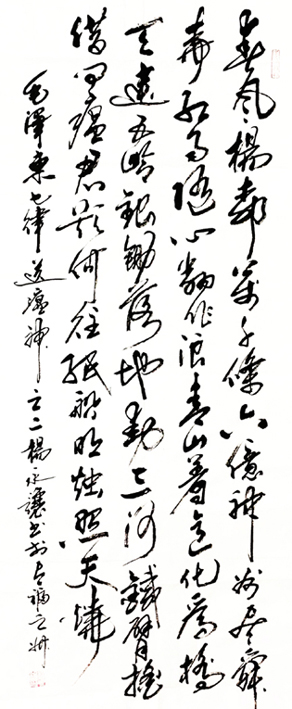 春風楊柳萬千條六億神州盡舜
堯紅雨隨心翻作浪青山著意化為橋
天連五嶺銀鋤落地動三河鐵臂搖
借問瘟君欲何往紙船明燭照天燒
毛澤東七律送瘟神之二楊永讓書於古福之州